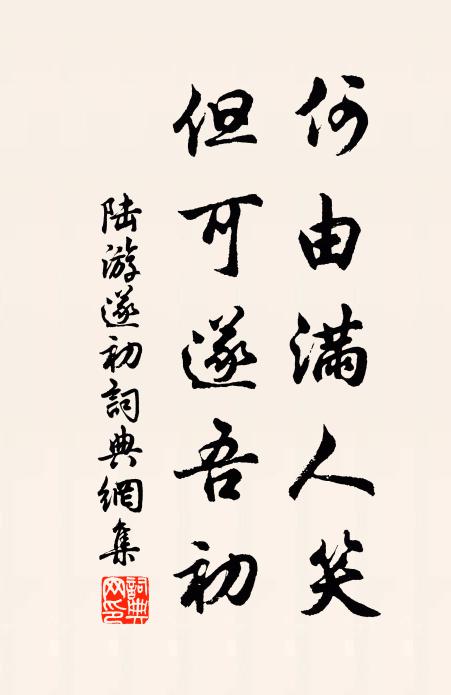 何由满人笑
但可遂吾初
陆游遂初詞典網集
詞典网印